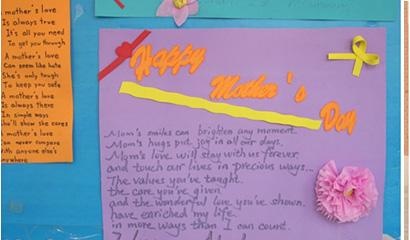 mother's love
Is always true
It's all you need
To get you through
A mother's love
Can seem like hate
She's only tough
To keep you safe
A mother's love
Is always there
In simple ways
She'll show she cares
A mother's love
can never compare
With anyone else's
Anywhere
Happy
Mother's
Day
Mom's smiles can brighten any moment.
Mom's hugs put joy in all our days.
Mom's love will stay with us forever
and touch our lives in precious ways...
The values you've taught.
the care you've given
and the wonderful love you've shown.
have enriched my life.
in more ways than I can count.